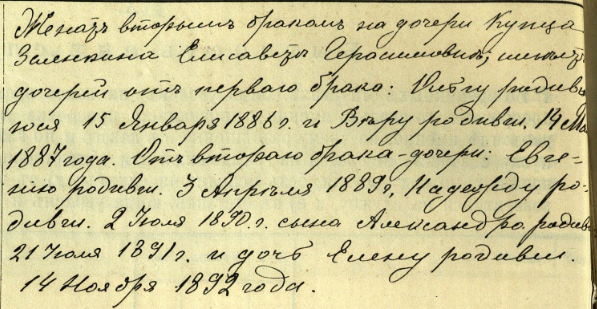 Женатъ вторымъ бракомъ на дочери Купца
Заленкина Елисаветѣ Герасимовнѣ, имѣетъ
дочерей отъ перваго брака: Ольгу родивш
юся 15 Января 1886 г. и Вѣру родивш. 14 Ма
1887 года. Отъ втораго брака - дочери: Евге-
нію родивш. 3 Апрѣля 1889 г, Надежду ро-
дивш. 2 Іюля 1890. г. сына Александра родив
21 Іюля 1891 г. и дочь Елену родивш.
14 Ноября 1892 года.